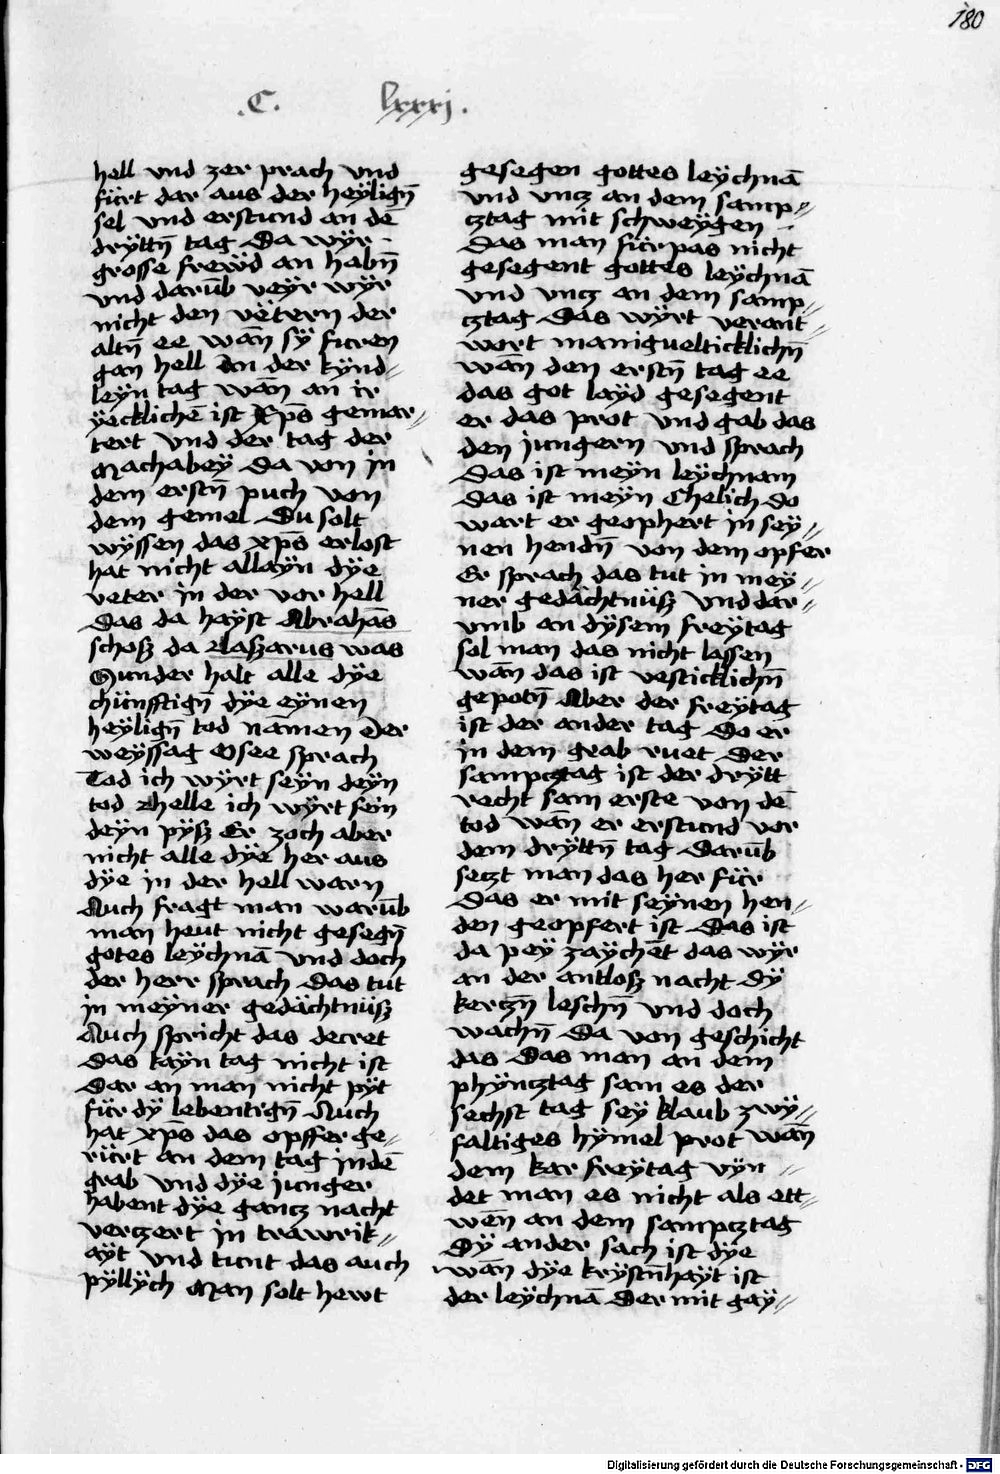 180
.C. lxxxj.
hell vnd zer prach vnd
fürt dar aus der heÿlign̄
sel vnd erstund an dē
drÿttn̄ tag Da wÿr
grosse frewd an habn̄
vnd darūb veÿr wÿr
nicht den vëtern der
altn̄ ee wān sÿ furen
gan hell An der kÿnd⸗
leÿn tag wān an ir
ÿecklichē ist xp̄s gemar⸗
tert vnd der tag der
Machabeÿ Da von in
dem erstn̄ puch von
dem gemel Du solt
wÿssen das xp̄s erlost
hat nicht allaÿn dÿe
veter in der vor hell
Das da haÿst Abrahās
schosz da Laszarus was
Sunder halt alle dÿe
chünfftign̄ dÿe eÿnen
heÿlign̄ tod nāmen Der
weÿssag Osee sprach
Tod ich wÿrt seÿn deÿn
tod Ahelle ich wÿrt sein
deÿn pÿsz Er zoch aber
nicht alle dÿe her aus
dÿe in der hell warn
Auch fragt man warūb
man heut nicht gesegn̄
gotes leÿchnā vnd doch
der herr sprach Das tut
in meÿner gedächtnüsz
Auch spricht das decret
Das kaÿn tag nicht ist
Dar an man nicht pÿt
für dÿ lebentign̄ Auch
hat xp̄s das opffer ge⸗
rürt an dem tag indē
grab vnd dÿe junger
habent dÿe gancz nacht
verczert in trawrik⸗
aÿt vnd tunt das auch
pÿllÿch Man solt hewt
gesegen gottes leÿchnā
vnd vncz an dem samp⸗
cztag mit schweÿgen
Das man fürpas nicht
gesegent gottes leÿchnā
vnd vncz an dem samp⸗
cztag Das wÿrt verant⸗
wort manigueltticklichn̄
wān den erstn̄ tag ee
das got laÿd gesegent
er das prot vnd gab das
den jungern vnd sprach
Das ist meÿn leÿchnam
Das ist meÿn Chelich do
wart er geophert in seÿ⸗
nen hendn̄ von dem opfer
Er sprach das tut in meÿ⸗
ner gedächtnüsz vnd dar⸗
vmb an dÿsem freÿtag
sol man das nicht lassen
wān das ist vesticklichn̄
gepotn̄ Aber der freÿtag
ist der ander tag Do er
in dem grab ruet Der
sampcztag ist der drÿtt
recht sam erste von dē
tod wān er erstund vor
dem drÿttn̄ tag Darūb
seczt man das her für
Das er mit seÿnen hen⸗
den geopfert ist Das ist
da peÿ zaÿchēt das wÿr
an der antlosz nacht dÿ
kerczn̄ leschn̄ vnd doch
wachn̄ Da von geschicht
das Das man an dem
phÿncztag sam es der
sechst tag seÿ klaub zwÿ⸗
faltiges hÿmel prot wān
dem kar freÿtag vÿn⸗
det man es nicht als ett⸗
wēn an dem sampcztag
Dÿ ander sach ist dÿe
wān dÿe krÿstn̄haÿt ist
der leÿchnā Der mit gaÿ⸗
Digitalisierung gefördert durch die Deutsche Forschungsgemeinschaft - DFG